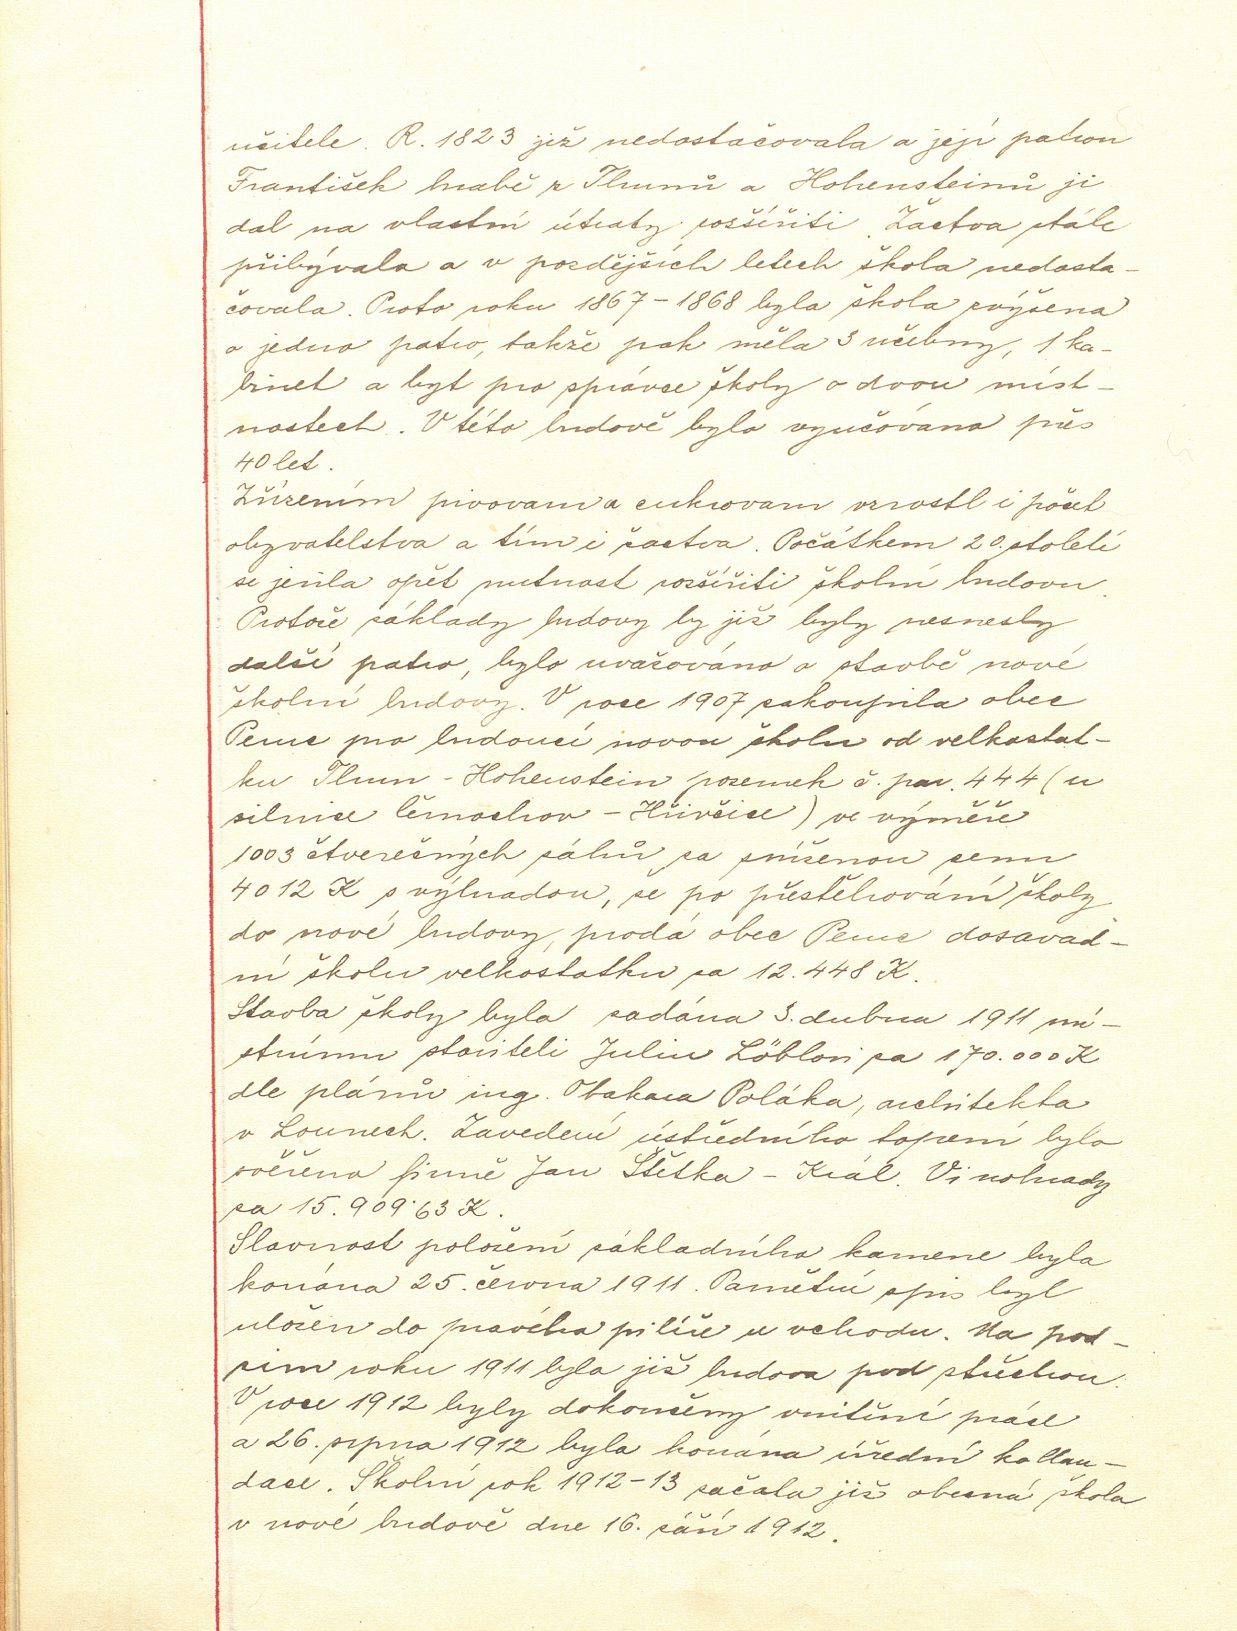 učitele. R. 1823 již nedostačovala a její patron
František hrabě z Thunů a Hohensteinů ji
dal na vlastní útraty rozšířiti. Žactva stále
přibývalo a v pozdějších letech škola nedosta-
čovala. Proto roku 1867-1868 byla škola zvýšena
o jedno patro, takže pak měla 3 učebny, 1 ka-
binet a byt pro správce školy o dvou míst-
nostech. V této budově bylo vyučováno přes
40 let.
Zřízením pivovaru a cukrovaru vzrostl i počet
obyvatelstva a tím i žactva. Počátkem 20. století
se jevila opět nutnost rozšířiti školní budovu.
Protože základy budovy by již byly nesnesly
další patro, bylo uvažováno o stavbě nové
školní budovy. V roce 1907 zakoupila obec
Peruc pro budoucí novou školu od velkostat-
ku Thun-Hohenstein pozemek č. par. 444 (u
silnice Černochov - Hřivčice) ve výměře
1003 čtverečných sáhů za sníženou cenu
4012 K s výhradou, že po přestěhování školy
do nové budovy, prodá obec Peruc dosavad-
ní školu velkostatku za 12.448 K.
Stavba školy byla zadána 3. dubna 1911 mi-
strnímu staviteli Juliu Löblovi za 170.000 K
dle plánů ing. Otakara Poláka, architekta
v Lounech. Zavedení ústředního topení bylo
svěřeno firmě Jan Štětka - Král. Vinohrady
za 15.909.63 K.
Slavnost položení základního kamene byla
konána 25. června 1911. Pamětní spis byl
uložen do pravého pilíře u vchodu. Na pod-
zim roku 1911 byla již budova pod střechou.
V roce 1912 byly dokončeny vnitřní práce
a 26. srpna 1912 byla konána úřední kollau-
dace. Školní rok 1912-13 začala již obecná škola
v nové budově dne 16. září 1912.